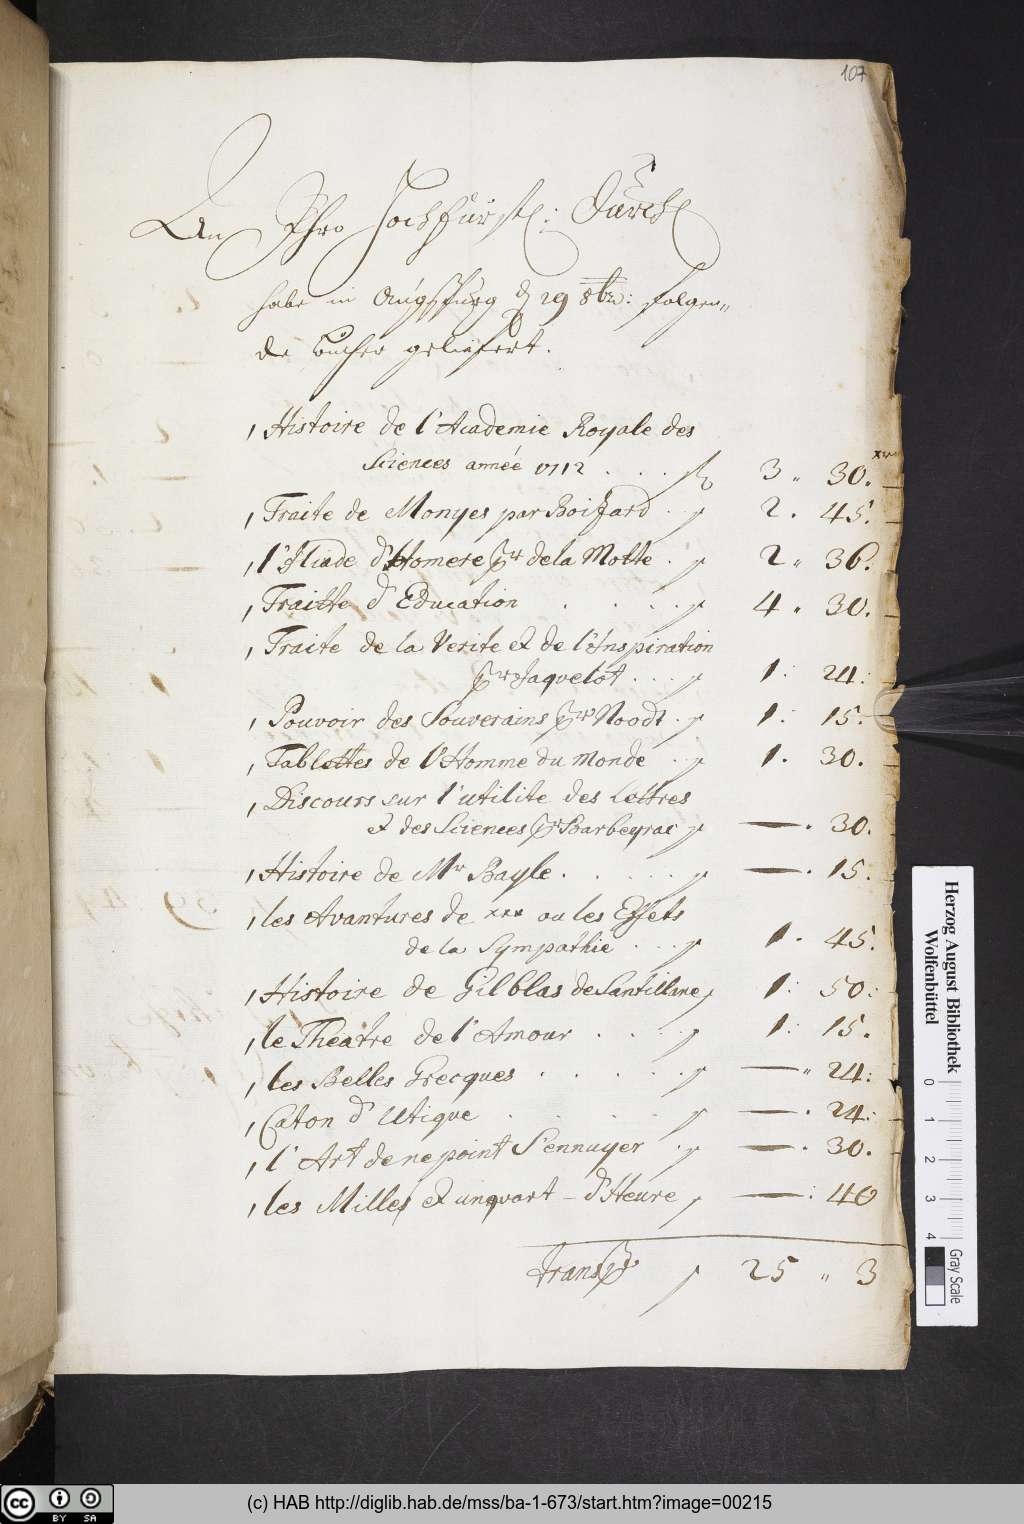 107
An Ihro Hochfürstl: Durchl
habe in Augspurg d 29 8br: folgen„
de bücher geliefert.
1 Histoire de l'Academie Royale des
Sciences année 1712 . . . fl 3 „ 30. xr
1 Traite de Monyes par Boizard . 2 . 45.
1 l'Iliade d'Homere pr de la Motte . 2 „ 36.
1 Traitte d'Education . . . . 4 „ 30.
1 Traite de la Verite et de l'Inspiration
pr Jaquelot . . . 1 : 24 :
1 Pouvoir des Souverains pr Noodt . 1 : 15 :
1 Tablettes de l'Homme du monde . . 1 . 30.
1 Discours sur l'utilite des lettres
et des Sciences pr Barbeyrac — . 30.
1 Histoire de Mr Bayle . . . . . — . 15.
1 les Avantures de *** ou les Effets
de la Sympathie . . . 1 . 45.
1 Histoire de Gilblas de Santillane 1 : 50 :
1 le Theatre de l'Amour . . . 1 : 15.
1 les Belles Grecques . . . . . — „ 24 :
1 Caton d'Utique . . . . — . 24 :
1 l'Art de ne point S'ennuyer . . — . 30.
1 les Milles et un quart - d'Heure — : 40
transp 25 „ 3
Herzog August Bibliothek
Wolfenbüttel
0 1 2 3 4
Gray Scale
cc BY SA
(c) HAB http://diglib.hab.de/mss/ba-1-673/start.htm?image=00215